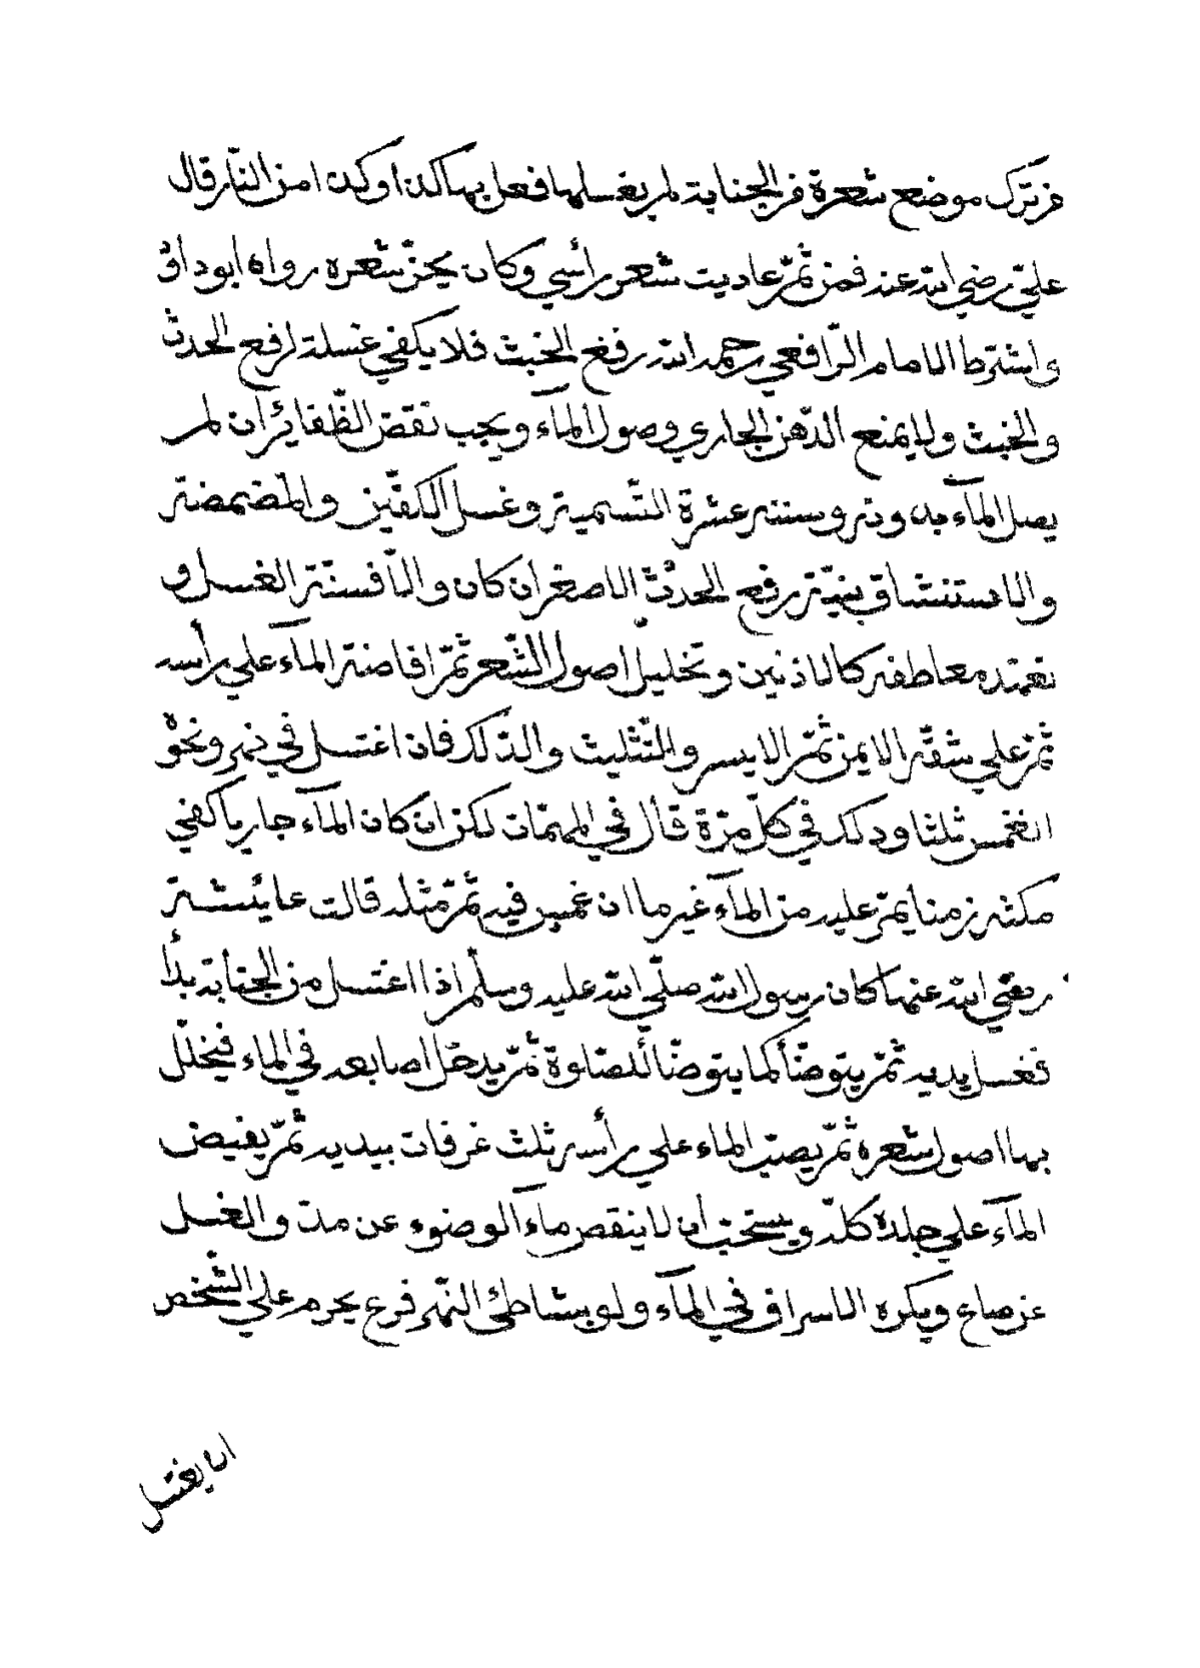 من ترك موضع شعرة من الجنابة لم يغسلها فعل بها كذا وكذا من النّار قال
عليّ رضي الله عنه فمن ثمّ عاديت شعر رأسي وكان يجزّ شعره رواه ابوداؤ
واشترط الامام الرّافعي رحمه الله رفع الخبث فلا يكفي غسلة لرفع الحدث
والخبث ولا يمنع الدّهن الجاري وصول المآء ويجب نقض الظّفائر ان لم
يصل المآء بدونه وسننه عشرة التّسمية وغسل الكفّين والمضمضة
والاستنشاق بنيّة رفع الحدث الاصغر ان كان والّا فسنّة الغسل و
تعهّده معاطفه كالاذنين وتخليل اصول الشّعر ثمّ افاضة المآء علي رأسه
ثمّ علي شقّه الايمن ثمّ الايسر والتّثليث والدّلك فان اغتسل في نهر ونحوه
انغمس ثلثا ودلك في كلّ مرّة قال في المهمّات لكن ان كان المآء جاريا كفي
مكثه زمنا يمرّ عليه من المآء غير ما ان غمس فيه ثمّ مثله قالت عائشة
رضي الله عنها كان رسول الله صلّي الله عليه وسلّم اذا اغتسل من الجنابة بدأ
فغسل يديه ثمّ يتوضّأ كما يتوضّأ للصّلوة ثمّ يدخل اصابعه في الماء فيخلّل
بها اصول شعره ثمّ يصبّ الماء علي رأسه ثلث غرفات بيديه ثمّ يفيض
المآء علي جلده كلّه ويستحبّ أن لا ينقص مآء الوضوء عن مدّ والغسل
عن صاع ويكره الاسراف في المآء ولو بشاطئ النّهر فرع يحرم علي الشّخص
ان يغتسل